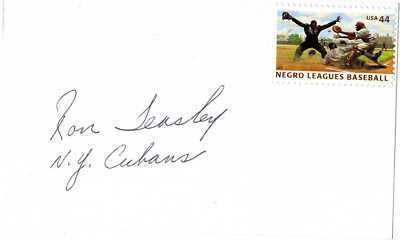 USA 44
NEGRO LEAGUES BASEBALL
Ron Teasley
N.Y. Cubans